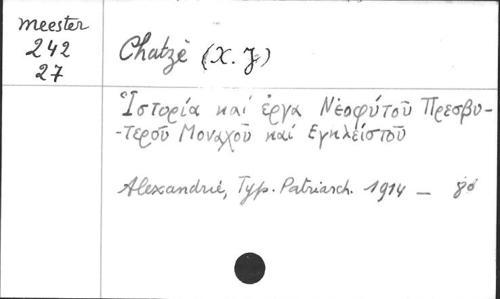 Meester
242
27
Chatzè (X. J)
Ἱστορία καὶ ἔργα Νεοφύτου Πρεσβυ-
-τέρου Μοναχοῦ καὶ Ἐγκλείστου
Alexandrie, Typ. Patriarch. 1914 — 8º